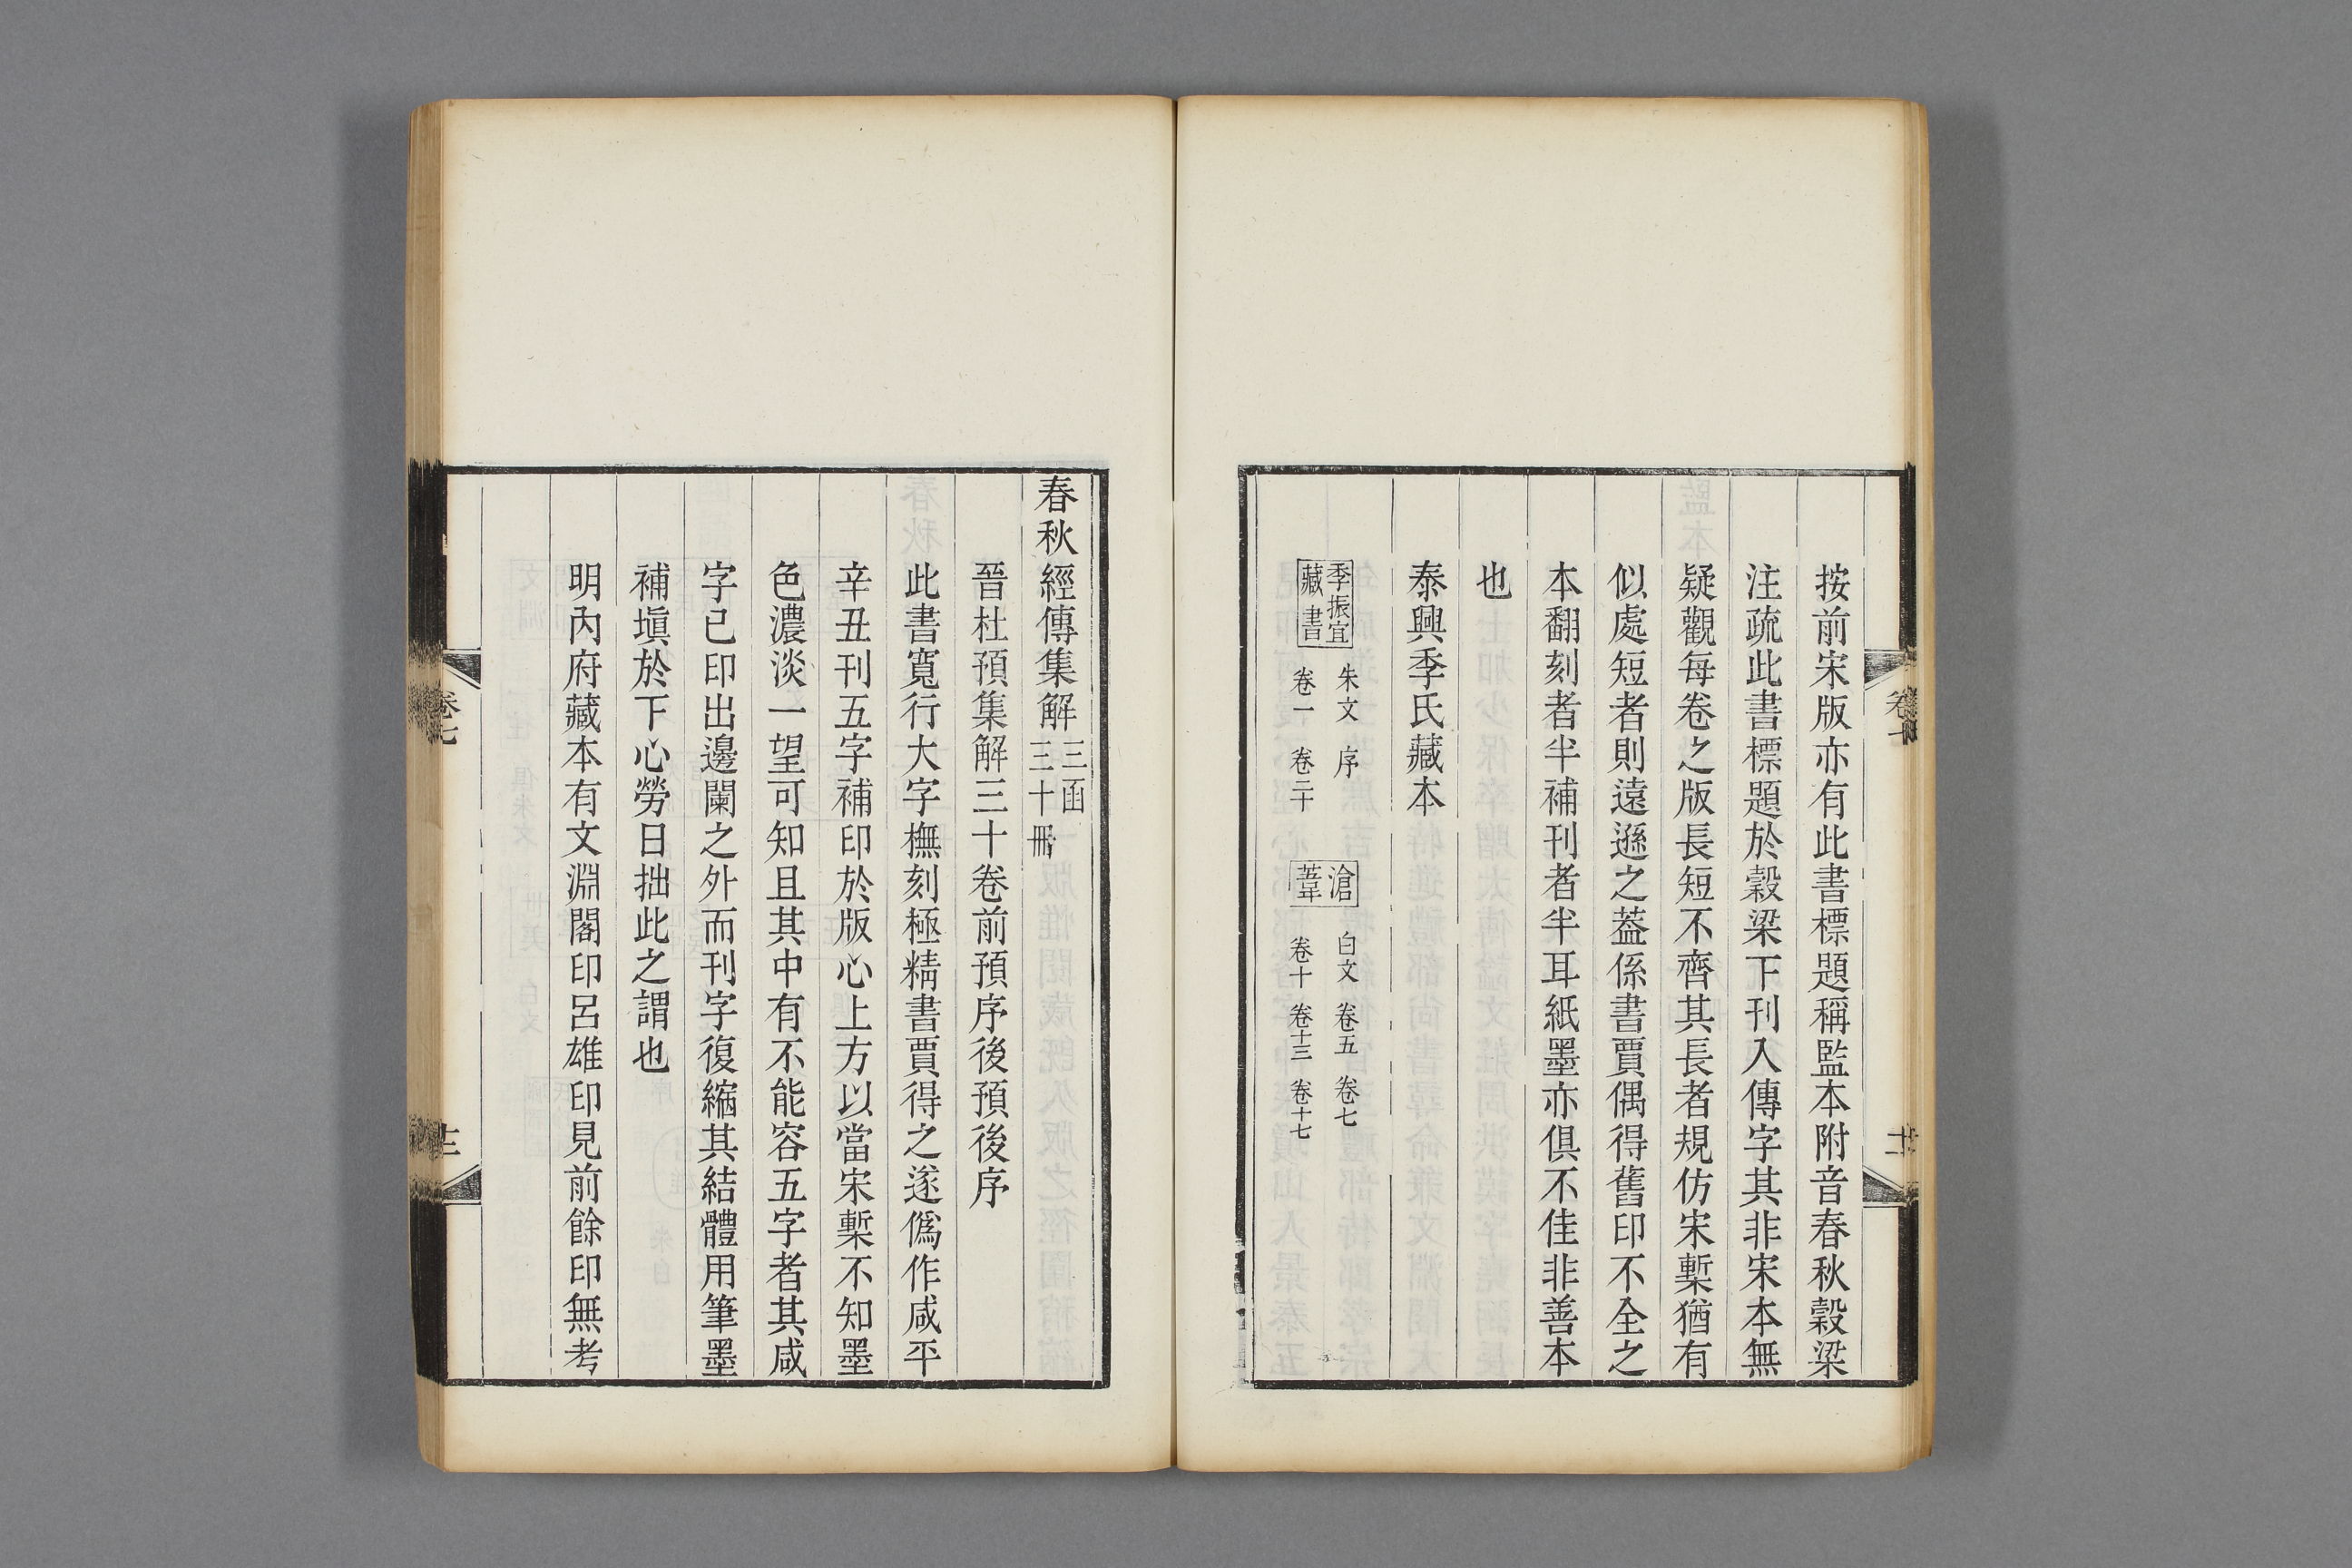 按前宋版亦有此書標題稱監本附音春秋穀梁
注疏此書標題於穀梁下刊入傳字其非宋本無
疑觀每卷之版長短不齊其長者規仿宋槧猶有
似處短者則遠遜之蓋係書賈偶得舊印不全之
本翻刻者半補刊者半耳紙墨亦俱不佳非善本
也
泰興季氏藏本
季振宜
藏書
朱文 序
卷一 卷二十
滄
葦
白文 卷五 卷七
卷十 卷十三 卷十七
卷七
春秋經傳集解
三函
三十冊
晉杜預集解三十卷前預序後預後序
此書寬行大字橅刻極精書賈得之遂僞作咸平
辛丑刊五字補印於版心上方以當宋槧不知墨
色濃淡一望可知且其中有不能容五字者其咸
字已印出邊闌之外而刊字復縮其結體用筆墨
補塡於下心勞日拙此之謂也
明內府藏本有文淵閣印呂雄印見前餘印無考
卷七